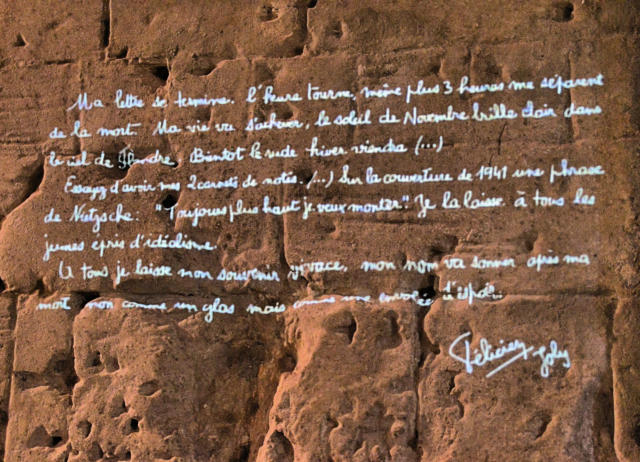 Ma lettre se termine. l'heure tourne, même plus 3 heures me séparent
de la mort. Ma vie va s'achever, le soleil de Novembre brille clair dans
le ciel de Flandre. Bientot le rude hiver viendra (...)
Essayez d'avoir mes 2 carnets de notes. (...) Sur la couverture de 1941 une phrase
de Nietzsche. "Toujours plus haut je veux monter". Je la laisse à tous les
jeunes epris d'idéalisme.
A tous je laisse mon souvenir vivace, mon nom va sonner après ma
mort non comme un glas mais comme une envolée d'espoir.
Félicien Joly